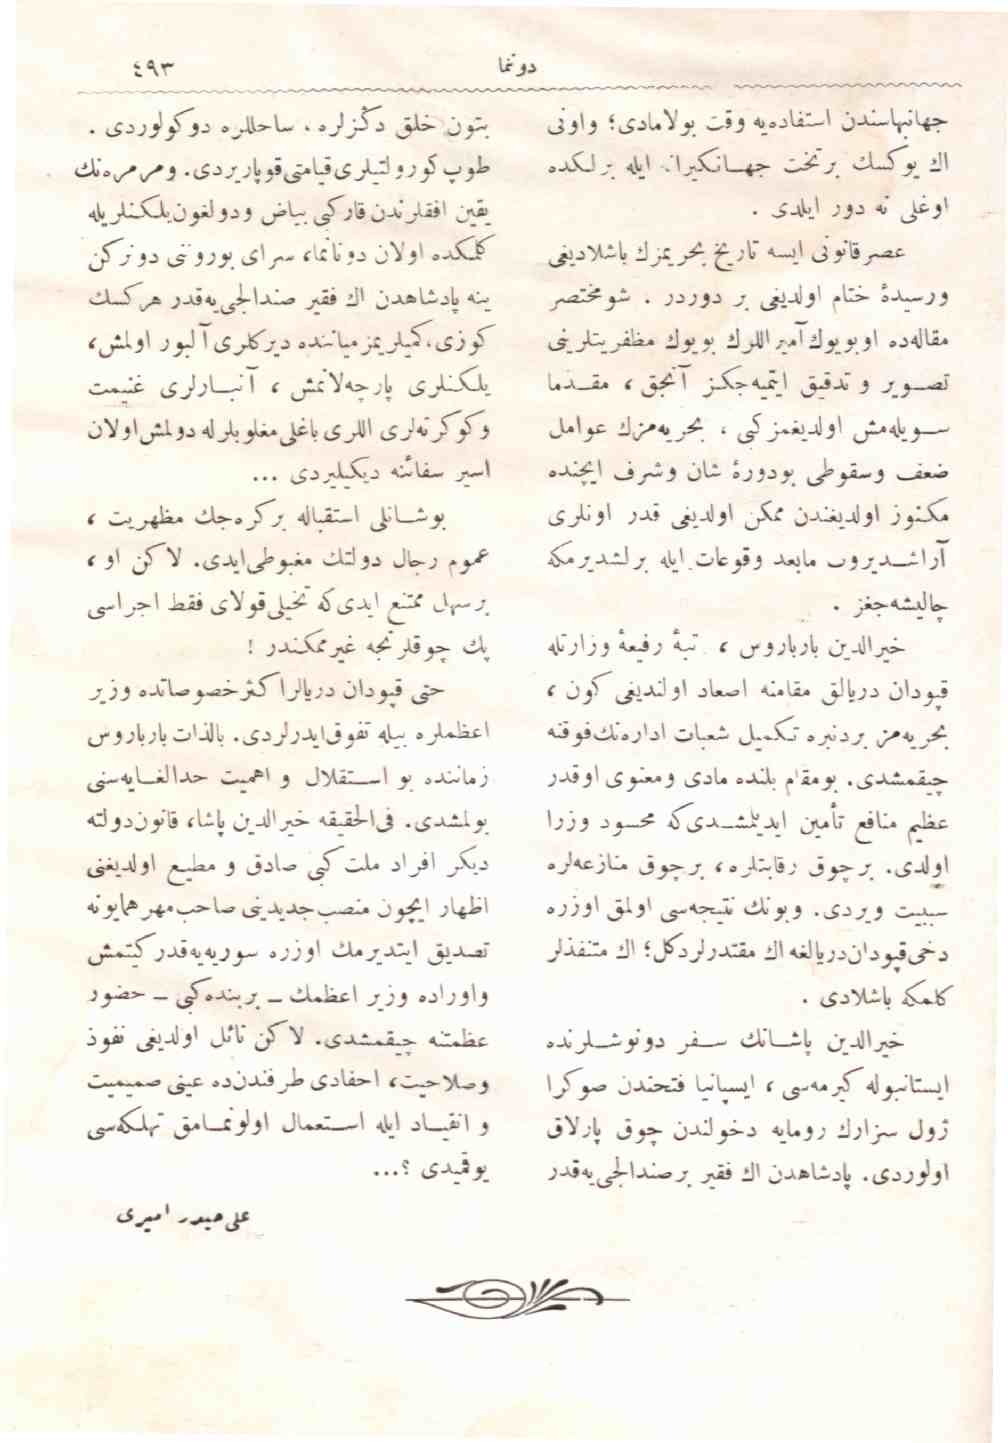 دونما
٤٩٣
جهانبهاسندن استفاده‌یه وقت بولامادی؛ واونی
اك یوكسك برتخت جهـانكیرانه ایله برلكده
اوغلی نه دور ایلدی .
عصر قانونی ایسه تاریخ بحریمزك باشلادیغی
ورسیدهٔ ختام اولدیغی بر دوردر . شو مختصر
مقاله‌ده اوبویوك آمیراللرك بویوك مظفریتلرینی
تصـویر و تدقیق ایتمیه‌جكز آنجق ، مقـدما
سـویله‌مش اولدیغمز كبی ، بحریه‌مزك عوامل
ضعف وسقوطی بودورهٔ شان وشرف ایچنده
مكنوز اولدیغندن ممكن اولدیغی قدر اونلری
آراشـدیروب مابعد وقوعات ایله برلشدیرمكه
چالیشه‌جغز .
خیرالدین بارباروس ، تبهٔ رفیعهٔ وزارتله
قپودان دریالق مقامنه اصعاد اولندیغی كون ،
بحریه‌مز بردنبره تكمیل شعبات اداره‌نك فوقنه
چیقمشدی. بومقام بلنده مادی ومعنوی اوقدر
عظیم منافع تأمین ایدیلمشـدی‌كه محسود وزرا
اولدی. برچوق رقابتلره، برچوق منازعه‌لره
سببیت ویردی. وبونك نتیجه‌سی اولمق اوزره
دخی قپودان دریالغه اك مقتدرلر دكل؛ اك متنفذلر
كلمكه باشلادی .
خیرالدین پاشـانك سـفر دونوشـلرنده
ایستانبوله كیرمه‌سی ، ایسپانیا فتحندن صوكرا
ژول سزارك رومایه دخولندن چوق پارلاق
اولوردی. پادشاهدن اك فقیر برصندالجی‌یه‌قدر
بتون خلق دكزلره ، ساحللره دوكولوردی .
طوپ كورولتیلری قیامتی قوپاریردی. ومرمره‌نك
یقین افقلرندن قاركبی بیاض ودولغون یلكنلریله
كلمكده اولان دونانما، سرای بورونی دونركن
ینه پادشاهدن اك فقیر صندالجی‌یه‌قدر هركسك
كوزی، كمیلریمز میاننده دیركلری آلبور اولمش،
یلكـنلری پارچه‌لانمش ، آنبـارلری غنیمت
وكوكرته‌لری اللری باغلی مغلوبلرله دولمش اولان
اسیر سفائنه دیكیلیردی ...
بوشـانلی استقباله بركره‌جك مظهریت ،
عموم رجال دولتك مغبوطی‌ایدی. لاكن او ،
برسهل ممتنع ایدی‌كه تخیلی قولای فقط اجراسی
پك چوقلرنجه غیرممكندر !
حتی قپودان دریالر اكثر خصوصاتده وزیر
اعظملره بیله تفوق ایدرلردی. بالذات بارباروس
زماننده بو اسـتقلال و اهمیت حدالغـایه‌سنی
بولمشدی. فی‌الحقیقه خیرالدین پاشا، قانون دولته
دیكر افراد ملت كبی صادق و مطیع اولدیغنی
اظهار ایچون منصب جدیدینی صاحب مهر همایونه
تصدیق ایتدیرمك اوزره سوریه‌یه‌قدر كیتمش
واوراده وزیر اعظمك ـ بربنده كبی ـ حضور
عظمتنه چیقمشدی. لاكن نائل اولدیغی نفوذ
وصلاحیت، احفادی طرفندن‌ده عینی صمیمیت
و انقیـاد ایله اسـتعمال اولونمـامق تهلكه‌سی
یوقمیدی ؟...
علی حیدر امیری